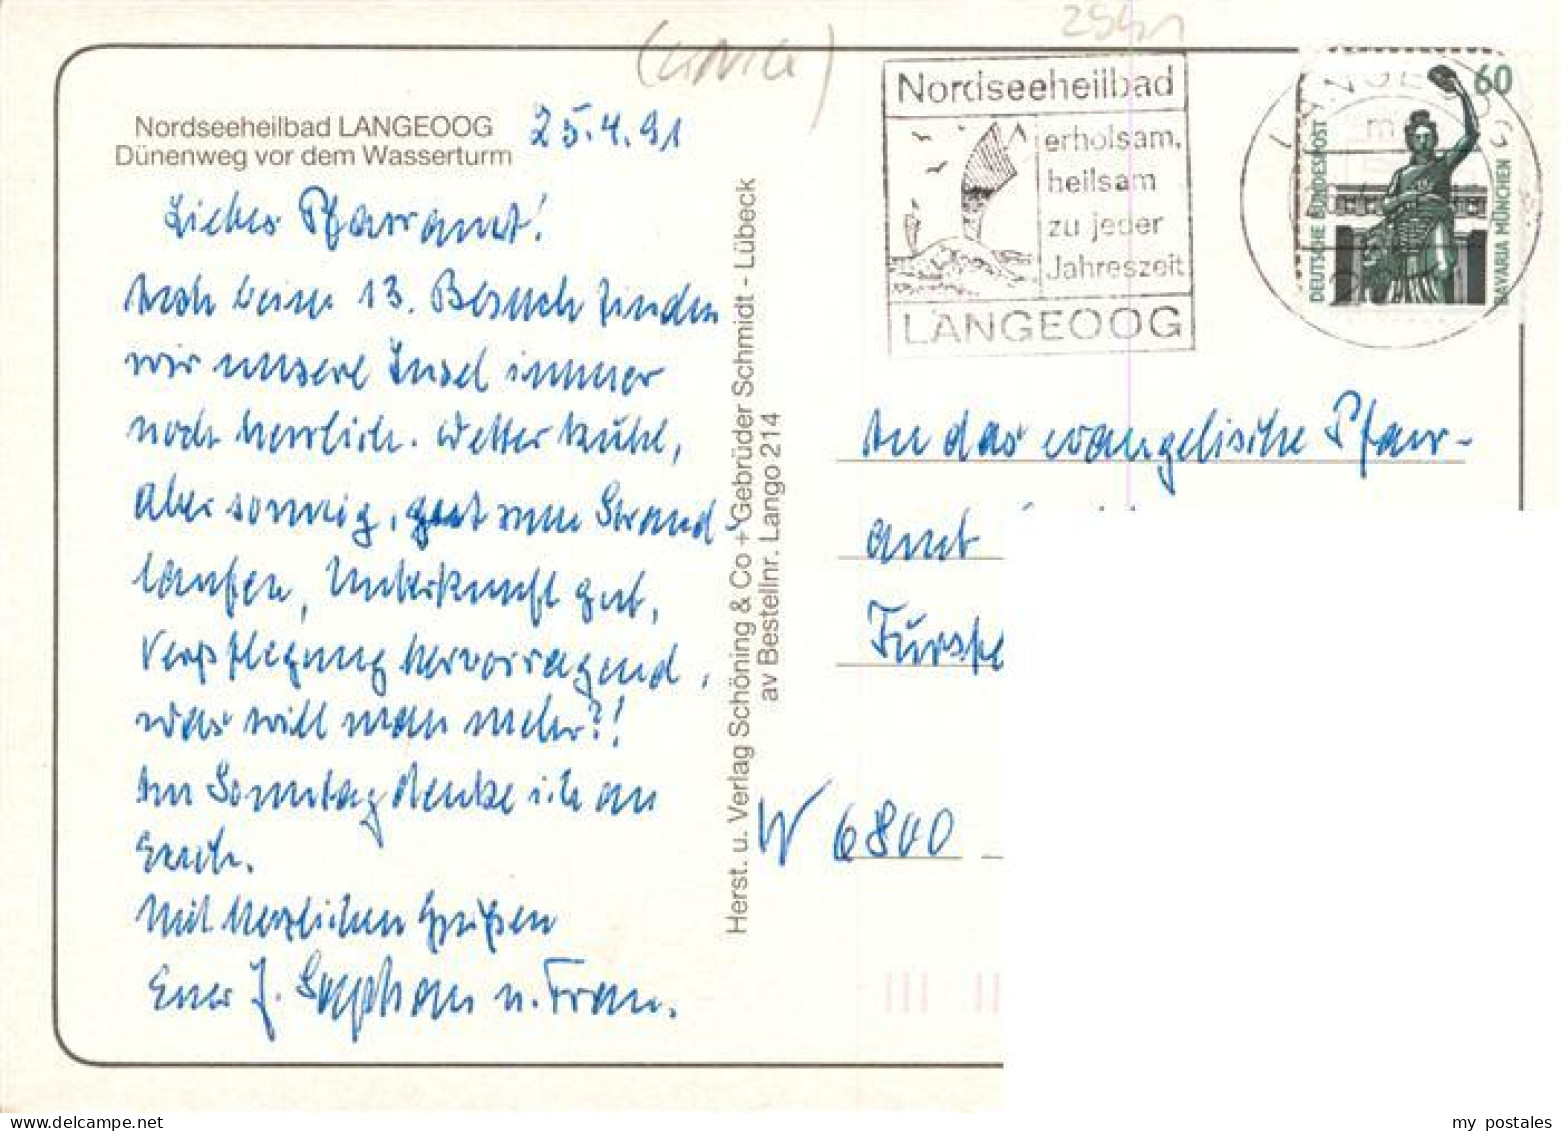 25.4.91
Nordseeheilbad LANGEOOG
Dünenweg vor dem Wasserturm
Liebes Pfarramt!
Auch beim 13. Besuch finden
wir unsere Insel immer
noch herrlich. Wetter kühl,
aber sonnig, gut zum Strand-
laufen, Unterkunft gut,
Verpflegung hervorragend,
was will man mehr?!
Am Sonntag denke ich an
Euch.
Mit herzlichen Grüßen
Euer J. u. Frau.
Herst. u. Verlag Schöning & Co + Gebrüder Schmidt - Lübeck
av Bestellnr. Lango 214
2941
Nordseeheilbad
erholsam,
heilsam
zu jeder
Jahreszeit
LANGEOOG
LANGEOOG
60
DEUTSCHE BUNDESPOST
BAVARIA MÜNCHEN
An das evangelische Pfarr-
amt
W 6800
my postales